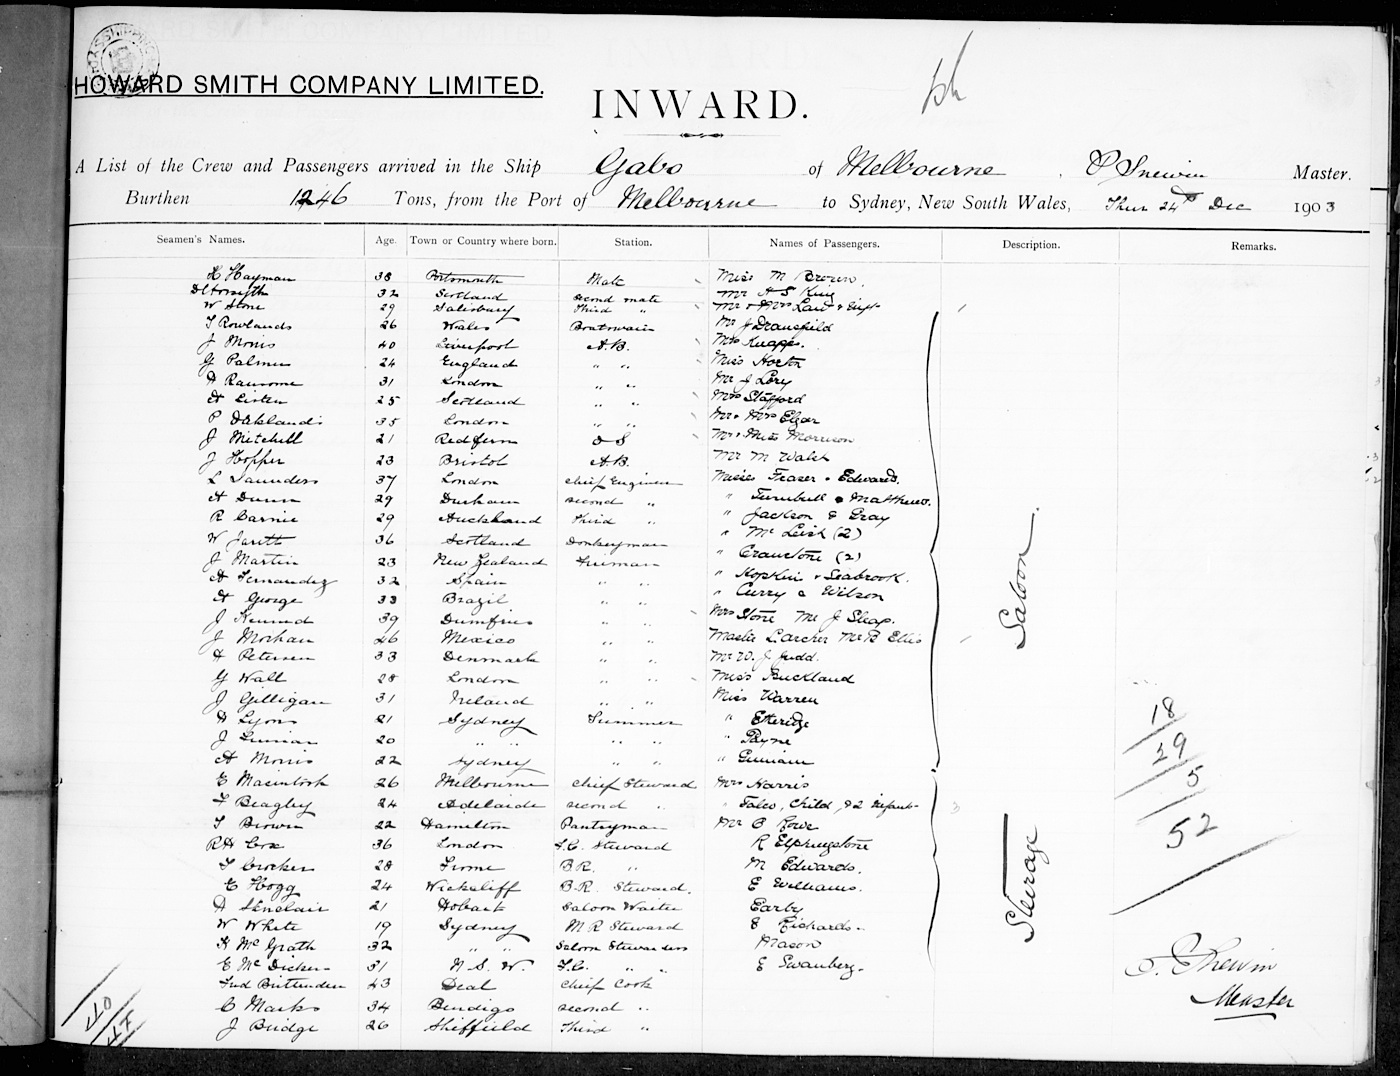 HOWARD SMITH COMPANY LIMITED.
INWARD.
A List of the Crew and Passengers arrived in the Ship Gabo of Melbourne Master.
Burthen 1246 Tons, from the Port of Melbourne to Sydney, New South Wales, Thur 24th Dec 1903
Seamen's Names. Age. Town or Country where born. Station. Names of Passengers. Description. Remarks.
H Hayman 38 Portsmouth Mate Miss M Brown
32 Scotland Second mate Mr H S King
W Stone 29 Salisbury Third " Mr & Mrs Law & Inft
T Rowlands 26 Wales Boatswain Mr J Dransfield
J Morris 40 Liverpool A.B. Mrs Knapp.
G Palmer 24 England " " Miss Horton
A Ransome 31 London " " Mr J Lory
A Lister 25 Scotland " " Mrs Stafford
P Oaklands 35 London " " Mr & Mrs Elgar
J Mitchell 21 Redfern O S Mr & Miss Morrison
J Hopper 23 Bristol A.B. Mr M Walsh
L Saunders 37 London Chief Engineer Misses Fraser & Edwards.
A Dunn 29 Durham Second " " Turnbull & Matthews.
R Carnie 29 Auckland Third " " Jackson & Gray
W Jarett 36 Scotland Donkeyman " Mc Leish (2)
J Martin 23 New Zealand Fireman " Cranstone (2)
A Fernandez 32 Spain " " " Hopkin & Seabrook.
A George 33 Brazil " " " Curry & Wilson
J Kennd 39 Dumfries " " Mrs Stone Mr J Sleap.
J Morhan 46 Mexico " " Master Larcher Mr B Ellis
A Petersen 33 Denmark " " Mr W. J. Judd.
G Wall 28 London " " Miss Buckland
J Gilligan 31 Ireland " " Miss Warren
A Lyons 21 Sydney Trimmer " Etheridge
J 20 " " " " " Payne
A Morris 22 Sydney " " "
E Macintosh 26 Melbourne Chief Steward Mrs Harris
F Beagley 24 Adelaide Second " " Child, & 2 Infant
T Brown 22 Hamilton Pantryman Mr C Rowe
R H Cox 36 London F.C. Steward R Elphingstone
T Crocker 28 Frome B.R. " M Edwards.
E Hogg 24 Wickcliff B.R. Steward. E Williams.
A Sinclair 21 Hobart Saloon Waiter Earby
W White 19 Sydney M R Steward E Richards.
K Mc Grath 32 " " Saloon Stewardess Mason
E Mc Dicken 51 N. S. W. F.C. " " E Swanberg.
Fred Bittenden 43 Deal Chief Cook
C Marks 34 Bendigo Second "
J Bridge 26 Sheffield Third "
Saloon.
Steerage
18
29
5
52
Master
40
47